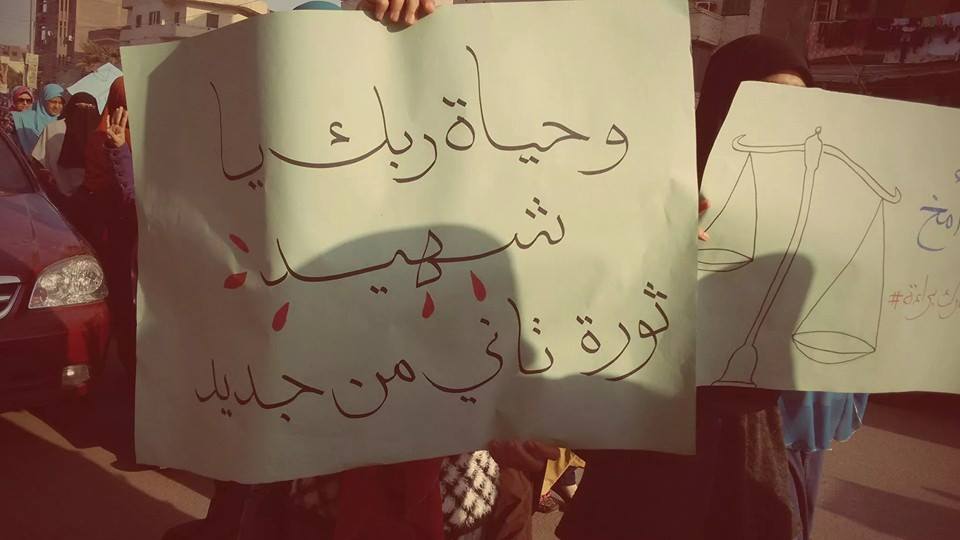 وحياة ربك يا
شهيد
ثورة تاني من جديد
براءة#